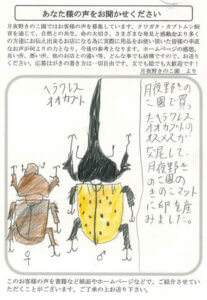 あなた様の声をお聞かせください
月夜野きのこ園ではお客様の声を募集しています。クワガタ・カブトムシ飼
育を通じて、自然との共生、命の大切さ、さまざまな発見と感動をより多く
の方達にお伝え出来るお店になる為に実際に用品をお使い頂いた皆様の率直
なお声が何よりの力となり、今後の参考となります。ホームページの感想、
良い所、悪い所、他のお店との違い等、どんな事でも結構ですので、お送り
ください。応募はがきの書き方は一切自由です。文でも絵でも大歓迎です!
月夜野きのこ園 より
ヘラクレス
オオカブト
月夜野きのこ
園で買っ
たヘラクレス
オオカブトの
オスメスが
交尾して、
月夜野きの
こ園のき
のこマット
に卵を産
みました。
♀
♂
このお客様の声を書籍など紙面やホームページなどで、ご紹介させてい
ただくことがございます。ご了承の上お送り下さい。